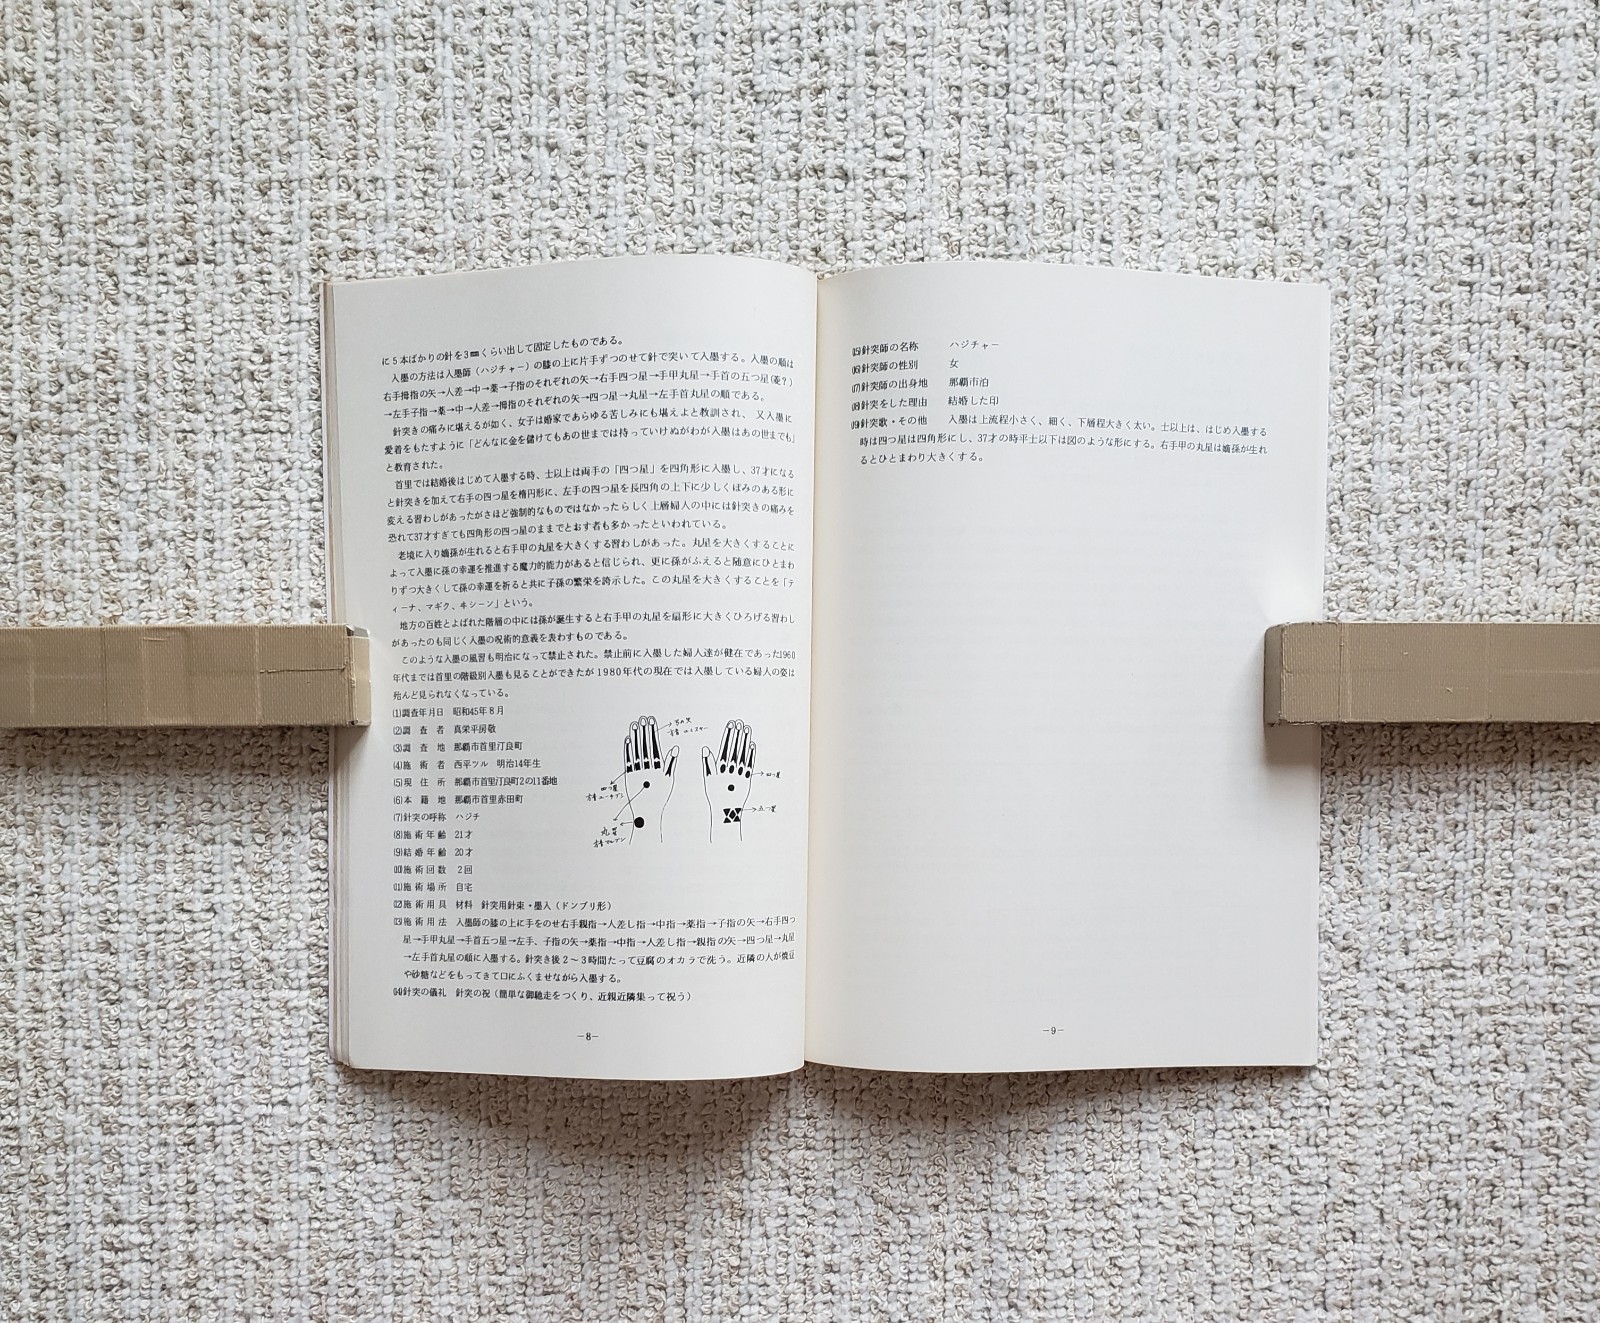 に5本ばかりの針を3㎜くらい出して固定したものである。
入墨の方法は入墨師(ハジチャー)の膝の上に片手ずつのせて針で突いて入墨する。入墨の順は
右手拇指の矢→人差→中→薬→子指のそれぞれの矢→右手四つ星→手甲丸星→手首の五つ星(菱?)
→左手子指→薬→中→人差→拇指のそれぞれの矢→四つ星→丸星→左手首丸星の順である。
針突きの痛みに堪えるが如く、女子は婚家であらゆる苦しみにも堪えよと教訓され、又入墨に
愛着をもたすように「どんなに金を儲けてもあの世までは持っていけぬがわが入墨はあの世までも」
と教育された。
首里では結婚後はじめて入墨する時、士以上は両手の「四つ星」を四角形に入墨し、37才になる
と針突きを加えて右手の四つ星を楕円形に、左手の四つ星を長四角の上下に少しくぼみのある形に
変える習わしがあったがさほど強制的なものではなかったらしく上層婦人の中には針突きの痛みを
恐れて37才すぎても四角形の四つ星のままでとおす者も多かったといわれている。
老境に入り嫡孫が生れると右手甲の丸星を大きくする習わしがあった。丸星を大きくすることに
よって入墨に孫の幸運を推進する魔力的能力があると信じられ、更に孫がふえると随意にひとまわ
りずつ大きくして孫の幸運を祈ると共に子孫の繁栄を誇示した。この丸星を大きくすることを「テ
ィーナ、マギク、ヰシーン」という。
地方の百姓とよばれた階層の中には孫が誕生すると右手甲の丸星を扇形に大きくひろげる習わし
があったのも同じく入墨の呪術的意義を表わすものである。
このような入墨の風習も明治になって禁止された。禁止前に入墨した婦人達が健在であった1960
年代までは首里の階級別入墨も見ることができたが1980年代の現在では入墨している婦人の姿は
殆んど見られなくなっている。
(1)調査年月日 昭和45年8月
(2)調査者 真栄平房敬
(3)調査地 那覇市首里汀良町
(4)施術者 西平ツル 明治14年生
(5)現住所 那覇市首里汀良町2の11番地
(6)本籍地 那覇市首里赤田町
(7)針突の呼称 ハジチ
(8)施術年齢 21才
(9)結婚年齢 20才
(10)施術回数 2回
(11)施術場所 自宅
(12)施術用具 材料 針突用針束・墨入(ドンブリ形)
(13)施術用法 入墨師の膝の上に手をのせ右手親指→人差し指→中指→薬指→子指の矢→右手四つ
星→手甲丸星→手首五つ星→左手、子指の矢→薬指→中指→人差し指→親指の矢→四つ星→丸星
→左手首丸星の順に入墨する。針突き後2～3時間たって豆腐のオカラで洗う。近隣の人が煎豆
や砂糖などをもってきて口にふくませながら入墨する。
(14)針突の儀礼 針突の祝(簡単な御馳走をつくり、近親近隣集って祝う)
四つ星
丸星
四つ星
五つ星
-8-
(15)針突師の名称 ハジチャー
(16)針突師の性別 女
(17)針突師の出身地 那覇市泊
(18)針突をした理由 結婚した印
(19)針突歌・その他 入墨は上流程小さく、細く、下層程大きく太い。士以上は、はじめ入墨する
時は四つ星は四角形にし、37才の時平士以下は図のような形にする。右手甲の丸星は嫡孫が生れ
るとひとまわり大きくする。
-9-